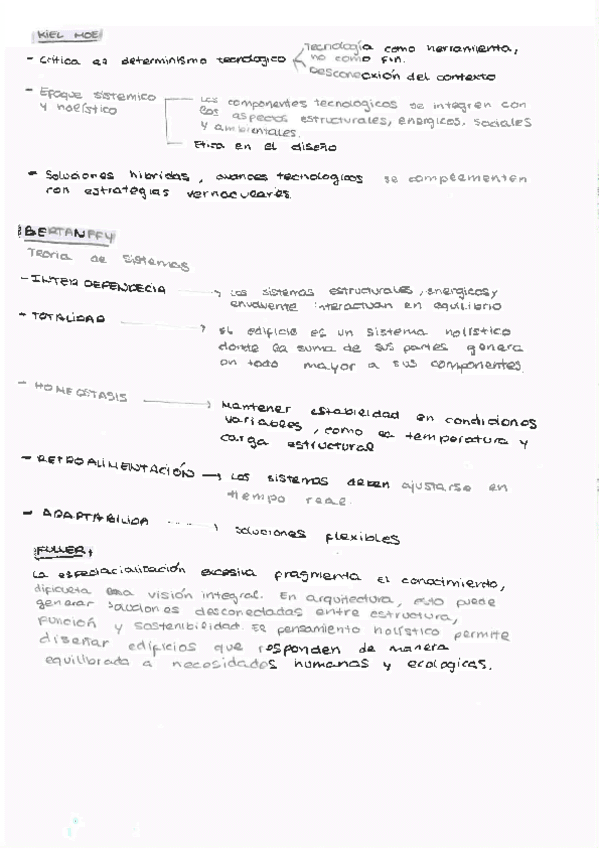 KIEL MOE
- Crítica es determinismo tecnologico
Tecnología como herramienta,
no como fin.
Desconexión del contexto
- Efoque sistemico
y holístico
Los componentes tecnologicos se integren con
los aspectos estructurales, energicos, sociales
y ambientales.
Etica en el diseño
- Soluciones hibridas, avances tecnologicos se complementen
con estrategias vernaculares.
BERTANFFY
Teoria de sistemas
- INTER DEPENDECIA → Los sistemas estructurales, energicos y
envolvente interactuan en equilibrio
+ TOTALIDAD → El edificio es un sistema holístico
donde la suma de sus partes genera
un todo mayor a sus componentes.
- HOMEOSTASIS → Mantener estabilidad en condiciones
variables, como la temperatura y
carga estructural
- RETROALIMENTACIÓN → Los sistemas deben ajustarse en
tiempo real.
- ADAPTABILIDA → soluciones flexibles
FULLER
La espacialización excesiva fragmenta el conocimiento,
dificulta una visión integral. En arquitectura, esto puede
generar soluciones desconectadas entre estructura,
función y sostenibilidad. El pensamiento holístico permite
diseñar edificios que responden de manera
equilibrada a necesidades humanas y ecologicas.